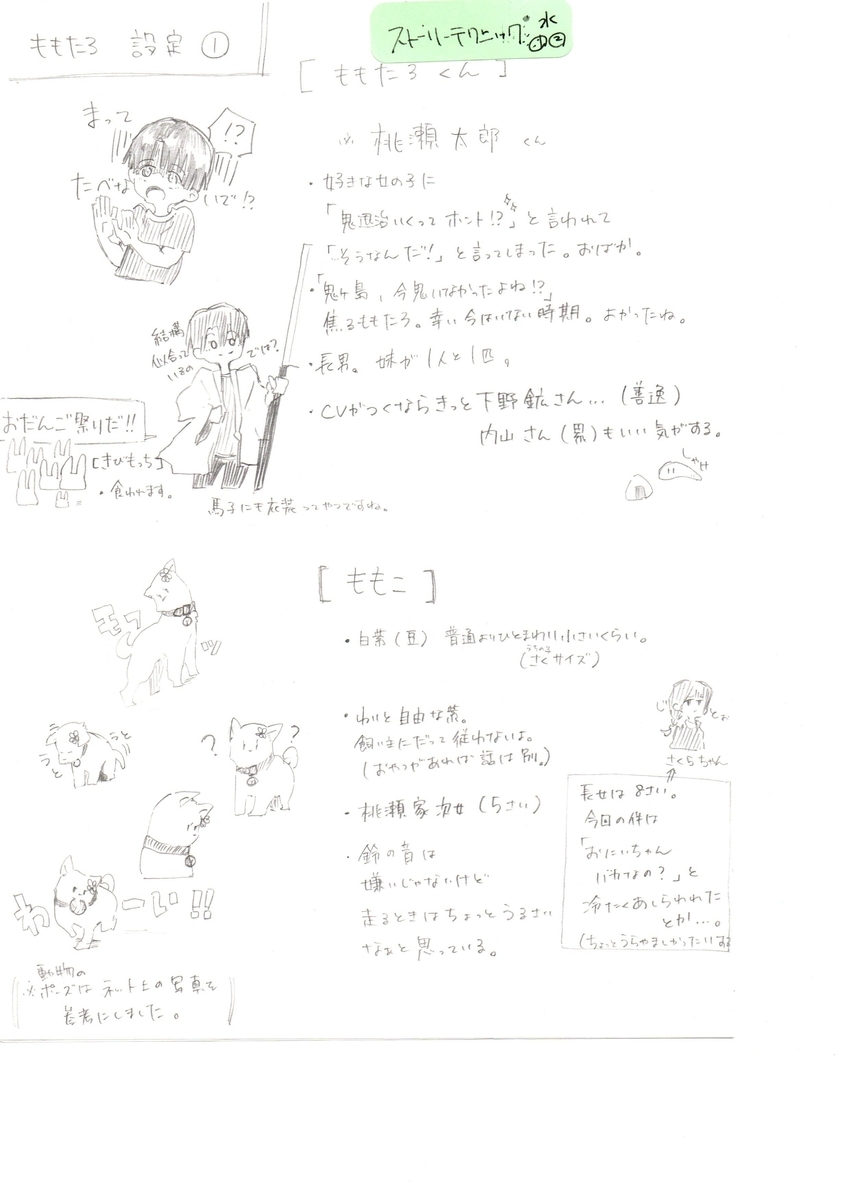 ももたろ 設定 ①
ストーリーテクニック 水
[ももたろくん]
まって
!?
たべないで!?
※ 桃瀬 太郎 くん
・好きな女の子に
「鬼退治いくってホント!?」と言われて
「そうなんだ!」と言ってしまった。おばか。
・「鬼ヶ島、今鬼いなかったよね!?」
焦るももたろ。幸い今はいない時期。よかったね。
・長男。妹が1人と1匹。
・CVがつくならきっと下野鉱さん…(善逸)
内山さん(累)もいい気がする。
しゃけ
結構
似合って
いるの
では?
おだんご祭りだ!!
[きびもっち]
・食われます。
馬子にも衣装ってやつですね。
[ももこ]
モフッ
・白柴(豆) 普通よりひとまわり小さいくらい。
うちの子
(さくサイズ)
・わりと自由な柴。
飼い主にだって従わないよ。
(おやつがあれば話は別。)
うと
うと
? ?
・桃瀬家次女(5さい)
・鈴の音は
嫌いじゃないけど
走るときはちょっとうるさい
なぁと思っている。
わーい!!
じとぉ
さくらちゃん
長女は8さい。
今回の件は
「おにいちゃん
バカなの?」と
冷たくあしらわれた
とか…。
(ちょっとうらやましかったりする
動物の
※ポーズはネット上の写真を
参考にしました。